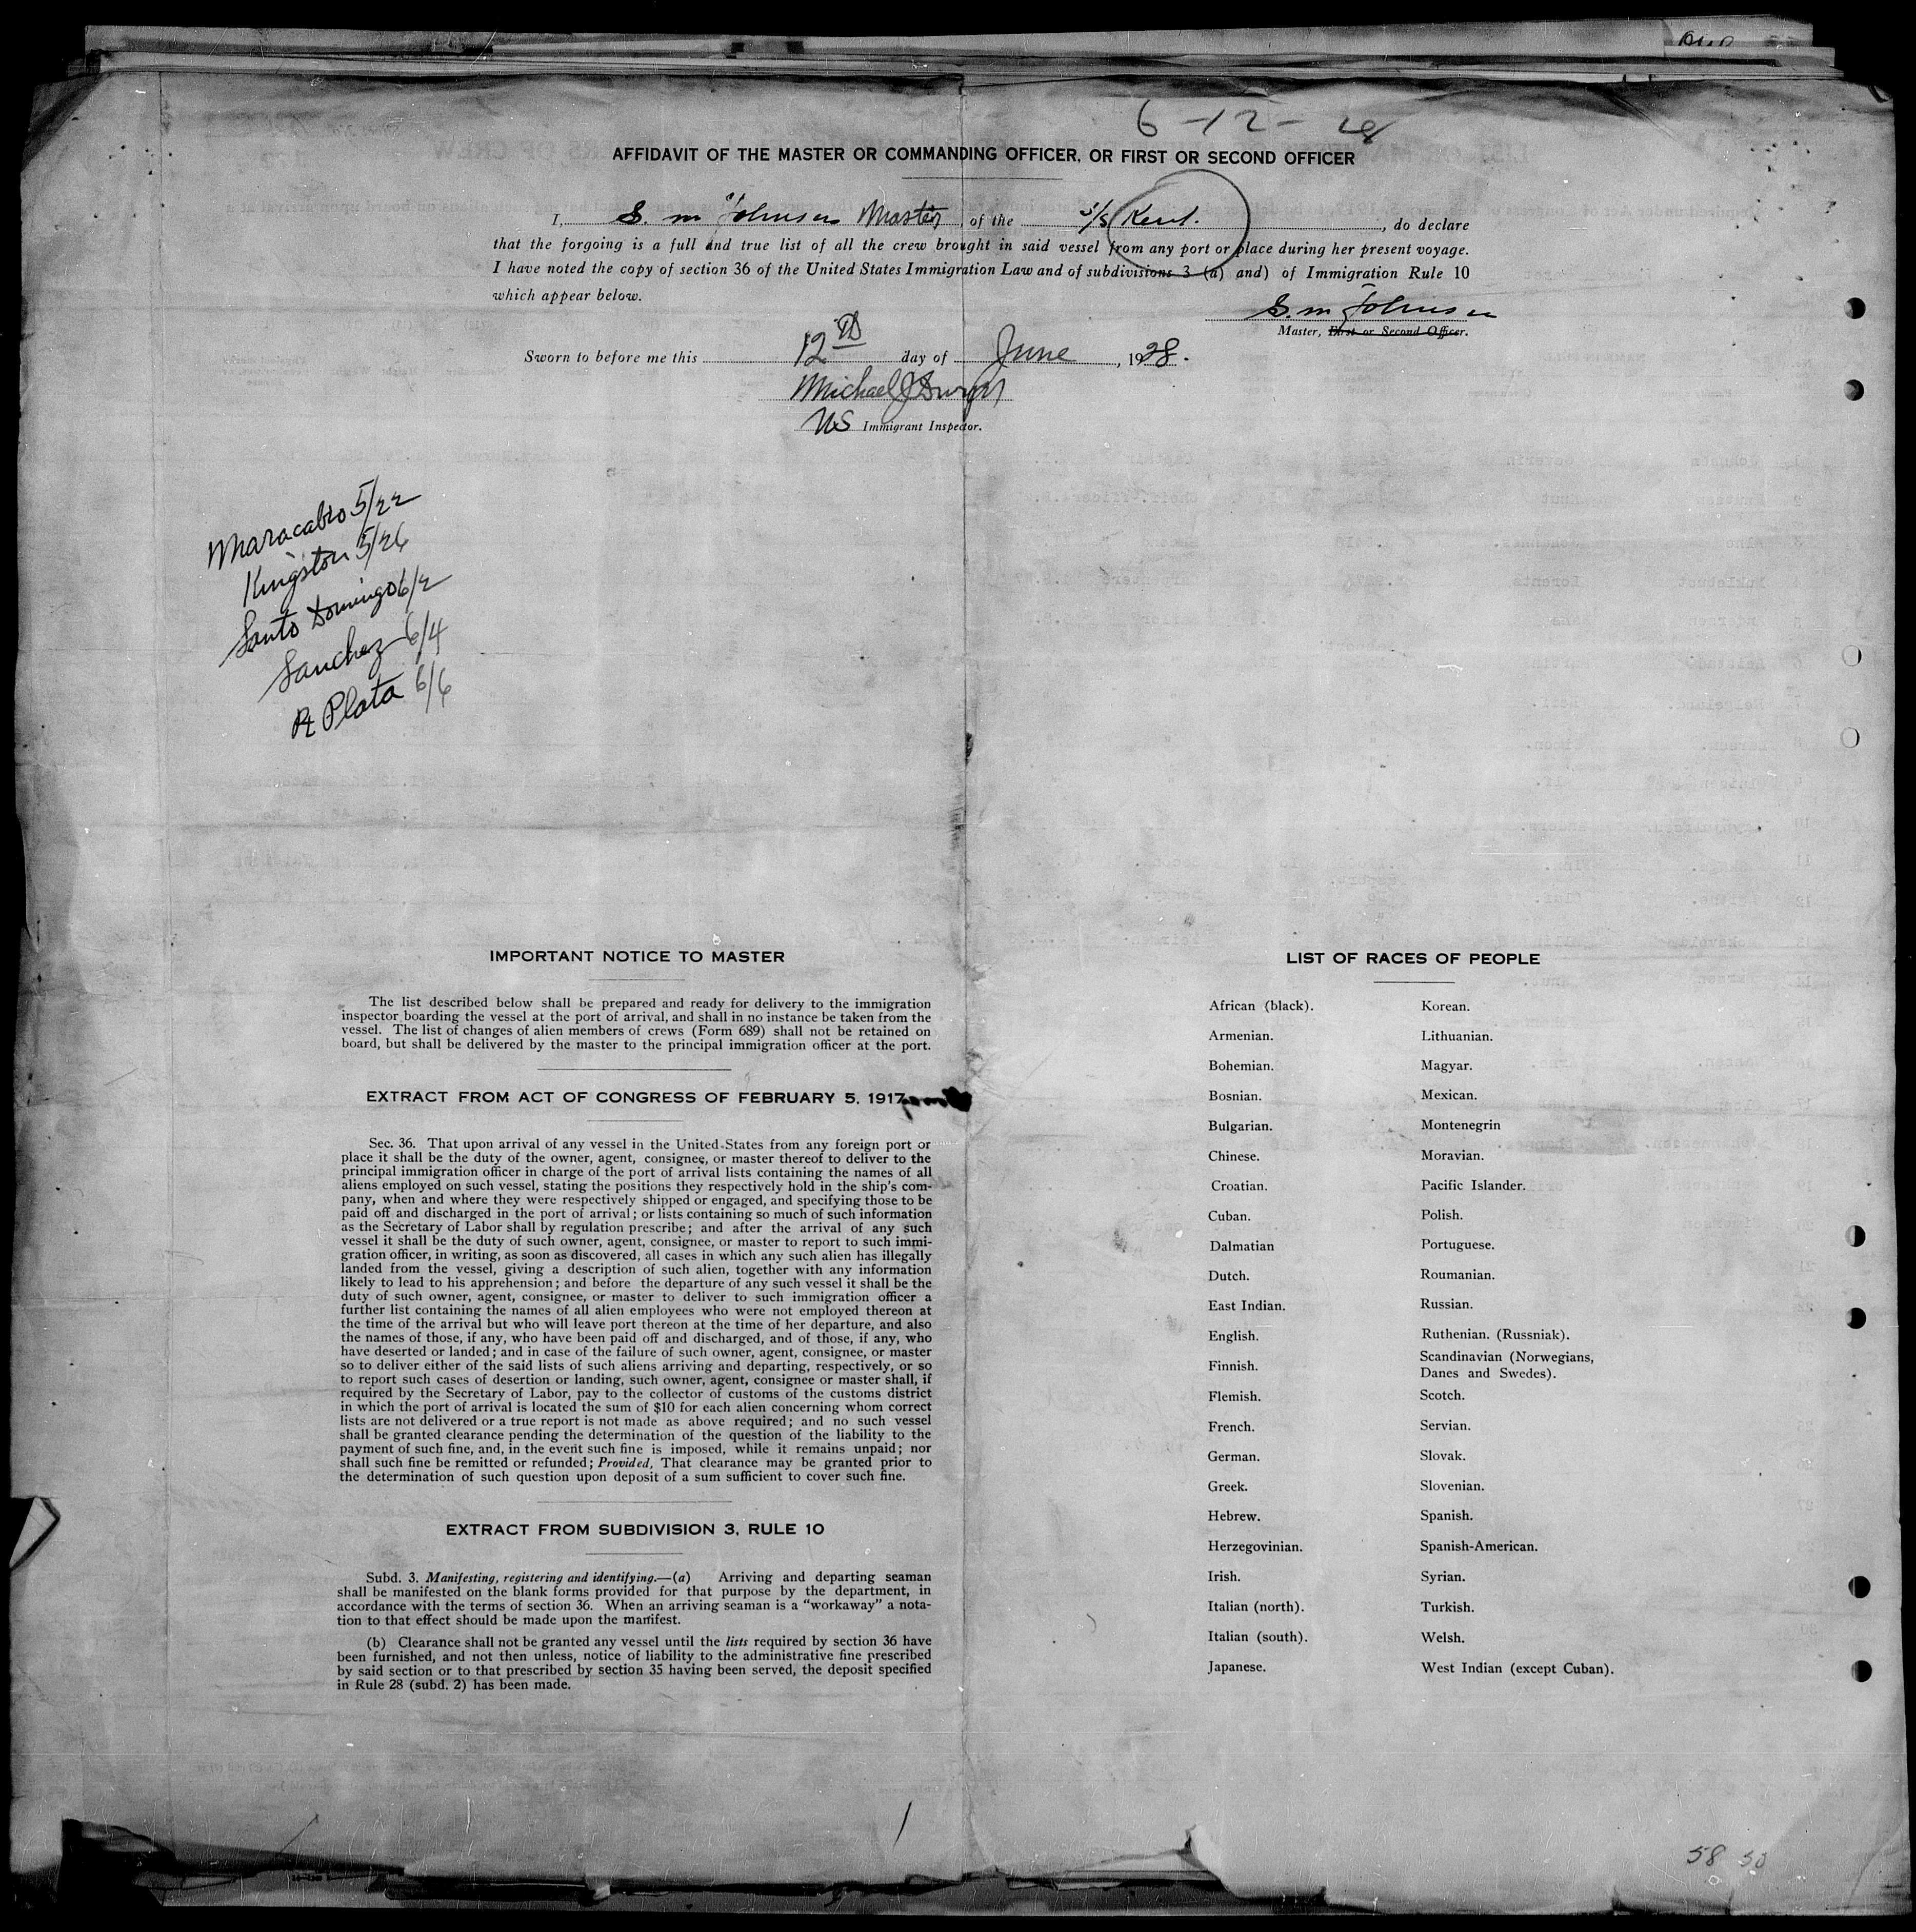 6-12-28
AFFIDAVIT OF THE MASTER OR COMMANDING OFFICER, OR FIRST OR SECOND OFFICER
I, S. M Johnsen Master, of the S/S Kent., do declare
that the forgoing is a full and true list of all the crew brought in said vessel from any port or place during her present voyage.
I have noted the copy of section 36 of the United States Immigration Law and of subdivisions 3 (a) and) of Immigration Rule 10
which appear below.
S. M Johnsen
Master, First or Second Officer.
Sworn to before me this 12th day of June, 1928.
Michael J
US Immigrant Inspector.
Maracabio 5/22
Kingston 5/26
Santo Domingo 6/2
Sanchez 6/4
Pt Plata 6/6
IMPORTANT NOTICE TO MASTER
The list described below shall be prepared and ready for delivery to the immigration
inspector boarding the vessel at the port of arrival, and shall in no instance be taken from the
vessel. The list of changes of alien members of crews (Form 689) shall not be retained on
board, but shall be delivered by the master to the principal immigration officer at the port.
EXTRACT FROM ACT OF CONGRESS OF FEBRUARY 5, 1917
Sec. 36. That upon arrival of any vessel in the United States from any foreign port or
place it shall be the duty of the owner, agent, consignee, or master thereof to deliver to the
principal immigration officer in charge of the port of arrival lists containing the names of all
aliens employed on such vessel, stating the positions they respectively hold in the ship's com-
pany, when and where they were respectively shipped or engaged, and specifying those to be
paid off and discharged in the port of arrival; or lists containing so much of such information
as the Secretary of Labor shall by regulation prescribe; and after the arrival of any such
vessel it shall be the duty of such owner, agent, consignee, or master to report to such immi-
gration officer, in writing, as soon as discovered, all cases in which any such alien has illegally
landed from the vessel, giving a description of such alien, together with any information
likely to lead to his apprehension; and before the departure of any such vessel it shall be the
duty of such owner, agent, consignee, or master to deliver to such immigration officer a
further list containing the names of all alien employees who were not employed thereon at
the time of the arrival but who will leave port thereon at the time of her departure, and also
the names of those, if any, who have been paid off and discharged, and of those, if any, who
have deserted or landed; and in case of the failure of such owner, agent, consignee, or master
so to deliver either of the said lists of such aliens arriving and departing, respectively, or so
to report such cases of desertion or landing, such owner, agent, consignee or master shall, if
required by the Secretary of Labor, pay to the collector of customs of the customs district
in which the port of arrival is located the sum of $10 for each alien concerning whom correct
lists are not delivered or a true report is not made as above required; and no such vessel
shall be granted clearance pending the determination of the question of the liability to the
payment of such fine, and, in the event such fine is imposed, while it remains unpaid; nor
shall such fine be remitted or refunded; Provided, That clearance may be granted prior to
the determination of such question upon deposit of a sum sufficient to cover such fine.
EXTRACT FROM SUBDIVISION 3, RULE 10
Subd. 3. Manifesting, registering and identifying.—(a) Arriving and departing seaman
shall be manifested on the blank forms provided for that purpose by the department, in
accordance with the terms of section 36. When an arriving seaman is a "workaway" a nota-
tion to that effect should be made upon the manifest.
(b) Clearance shall not be granted any vessel until the lists required by section 36 have
been furnished, and not then unless, notice of liability to the administrative fine prescribed
by said section or to that prescribed by section 35 having been served, the deposit specified
in Rule 28 (subd. 2) has been made.
LIST OF RACES OF PEOPLE
African (black).
Armenian.
Bohemian.
Bosnian.
Bulgarian.
Chinese.
Croatian.
Cuban.
Dalmatian
Dutch.
East Indian.
English.
Finnish.
Flemish.
French.
German.
Greek.
Hebrew.
Herzegovinian.
Irish.
Italian (north).
Italian (south).
Japanese.
Korean.
Lithuanian.
Magyar.
Mexican.
Montenegrin
Moravian.
Pacific Islander.
Polish.
Portuguese.
Roumanian.
Russian.
Ruthenian. (Russniak).
Scandinavian (Norwegians,
Danes and Swedes).
Scotch.
Servian.
Slovak.
Slovenian.
Spanish.
Spanish-American.
Syrian.
Turkish.
Welsh.
West Indian (except Cuban).
1
58 50